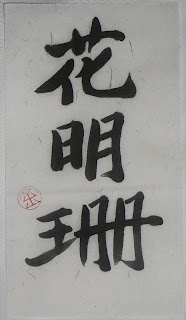 花明珊